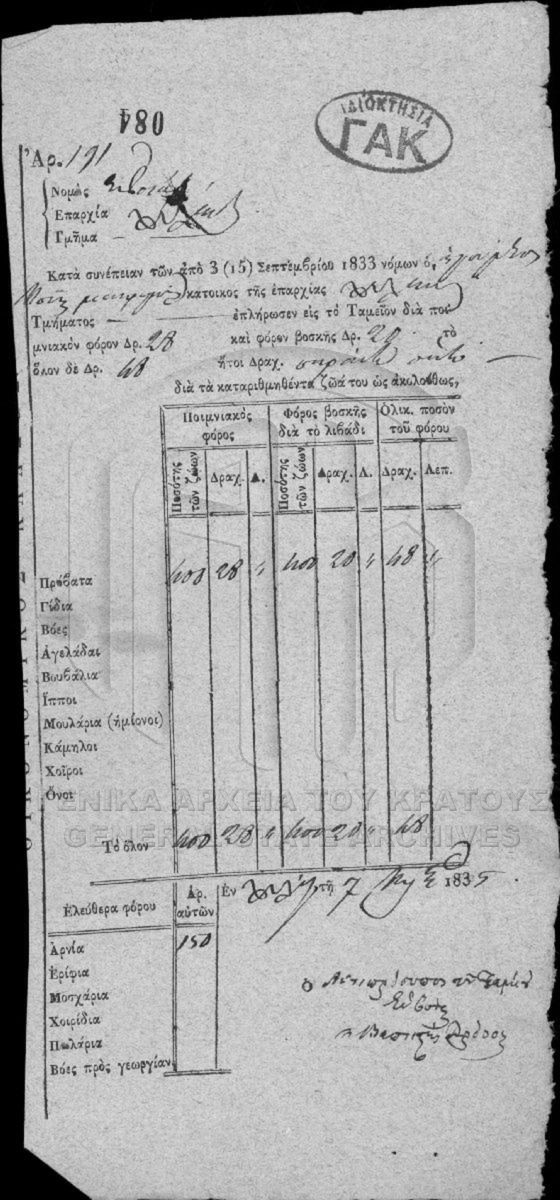 084
ΙΔΙΟΚΤΗΣΙΑ
ΓΑΚ
Ἀρ. 191
Νομὸς
Ἐπαρχία
Τμῆμα
Κατὰ συνέπειαν τῶν ἀπὸ 3 (15) Σεπτεμβρίου 1833 νόμων ὁ,
κατοικος τῆς ἐπαρχίας
Τμήματος ἐπλήρωσεν εἰς τὸ Ταμεῖον διὰ ποι
μνιακὸν φόρον Δρ. 28 καὶ φόρον βοσκῆς Δρ. 20 τὸ
ὅλον δὲ Δρ. 48 ἤτοι Δραχ. σαράντα οκτὼ
διὰ τὰ καταριθμηθέντα ζῶά του ὡς ἀκολούθως,
Ποιμνιακὸς φόρος Φόρος βοσκῆς διὰ τὸ λιβάδι Ὁλικ. ποσὸν τοῦ φόρου
Ποσότης τῶν ζώων Δραχ. Λ. Ποσότης τῶν ζώων Δραχ. Λ. Δραχ. Λεπ.
Πρόβατα 400 28 〃 400 20 〃 48 〃
Γίδια
Βόες
Ἀγελάδαι
Βουβάλια
Ἵπποι
Μουλάρια (ἡμίονοι)
Κάμηλοι
Χοῖροι
Ὄνοι
ΓΕΝΙΚΑ ΑΡΧΕΙΑ ΤΟΥ ΚΡΑΤΟΥΣ
GENERAL STATE ARCHIVES
Τὸ ὅλον 400 28 〃 400 20 〃 48
Ἐν τῇ 7 1835
Ἐλεύθερα φόρου Ἀρ. αὐτῶν
Ἀρνία 150
Ἐρίφια
Μοσχάρια
Χοιρίδια
Πωλάρια
Βόες πρὸς γεωργίαν